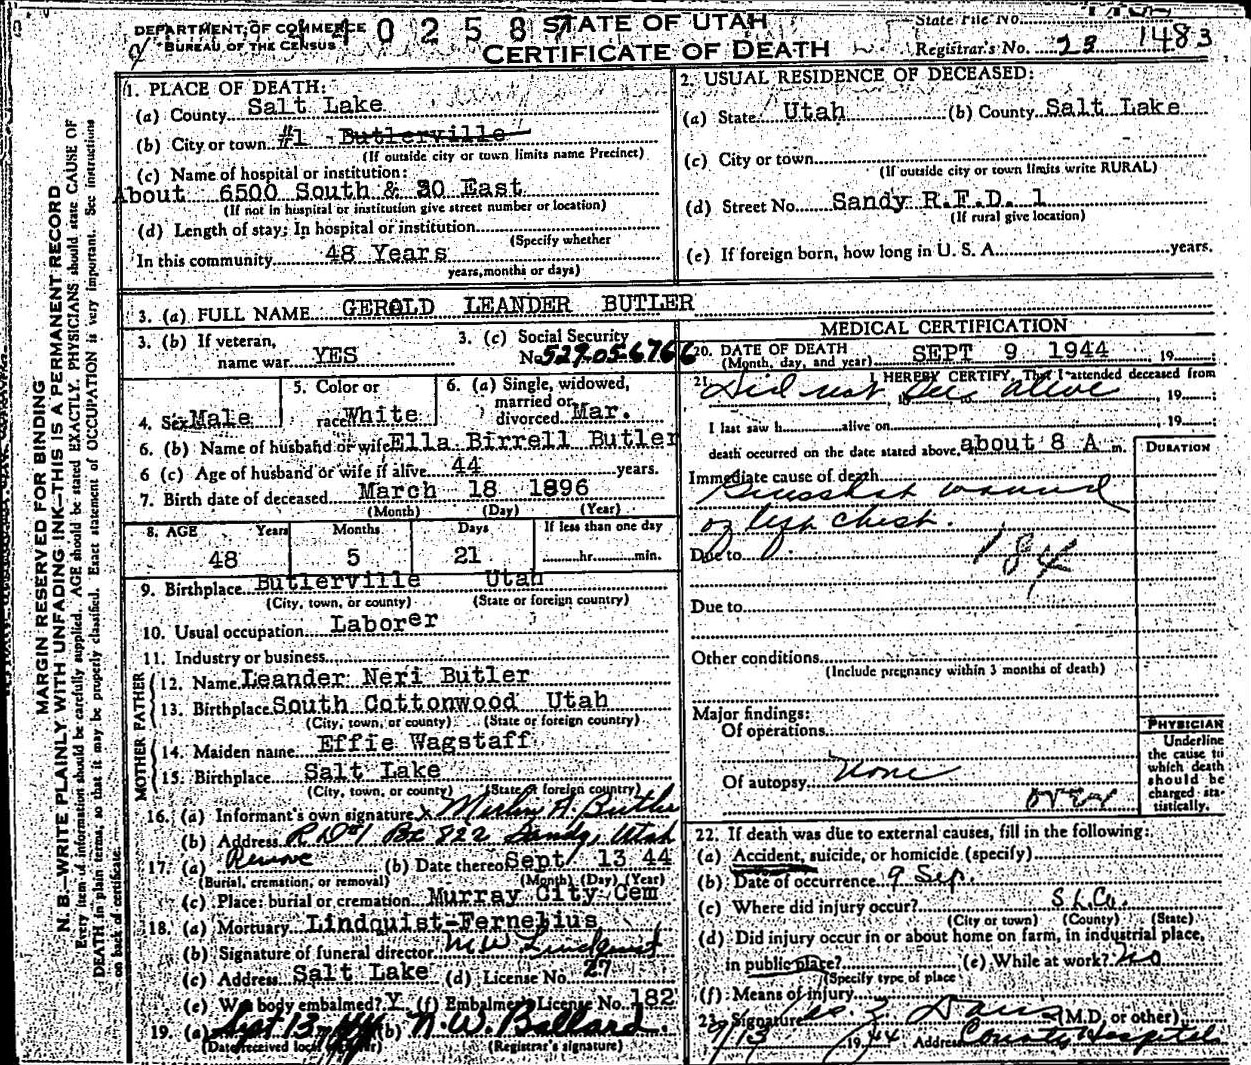 DEPARTMENT OF COMMERCE
BUREAU OF THE CENSUS
10258
STATE OF UTAH
CERTIFICATE OF DEATH
State File No.
Registrar's No. 23 1483
MARGIN RESERVED FOR BINDING
N. B.—WRITE PLAINLY WITH UNFADING INK—THIS IS A PERMANENT RECORD
Every item of information should be carefully supplied. AGE should be stated EXACTLY. PHYSICIANS should state CAUSE OF
DEATH in plain terms, so that it may be properly classified. Exact statement of OCCUPATION is very important. See instructions
on back of certificate.
1. PLACE OF DEATH:
(a) County Salt Lake
(b) City or town #1 - Butlerville
(If outside city or town limits name Precinct)
(c) Name of hospital or institution:
About 6500 South & 30 East
(If not in hospital or institution give street number or location)
(d) Length of stay: In hospital or institution
(Specify whether
In this community 48 Years
years, months or days)
2. USUAL RESIDENCE OF DECEASED:
(a) State Utah (b) County Salt Lake
(c) City or town
(If outside city or town limits write RURAL)
(d) Street No. Sandy R.F.D. 1
(If rural give location)
(e) If foreign born, how long in U. S. A. years.
3. (a) FULL NAME GEROLD LEANDER BUTLER
3. (b) If veteran,
name war YES
3. (c) Social Security
No. 529-05-6766
4. Sex Male
5. Color or
race White
6. (a) Single, widowed,
married or
divorced Mar.
6. (b) Name of husband or wife Ella Birrell Butler
6 (c) Age of husband or wife if alive 44 years.
7. Birth date of deceased March 18 1896
(Month) (Day) (Year)
8. AGE Years Months Days If less than one day
48 5 21 hr. min.
9. Birthplace Butlerville Utah
(City, town, or county) (State or foreign country)
10. Usual occupation Laborer
11. Industry or business
FATHER
12. Name Leander Neri Butler
13. Birthplace South Cottonwood Utah
(City, town, or county) (State or foreign country)
MOTHER
14. Maiden name Effie Wagstaff
15. Birthplace Salt Lake
(City, town, or county) (State or foreign country)
16. (a) Informant's own signature x A. Butler
(b) Address R D #1 Bx 822 Sandy, Utah
17. (a) Remove (b) Date thereof Sept 13 44
(Burial, cremation, or removal) (Month) (Day) (Year)
(c) Place: burial or cremation Murray City Cem
18. (a) Mortuary Lindquist-Fernelius
(b) Signature of funeral director M W Lindquist
(c) Address Salt Lake (d) License No. 27
(e) Was body embalmed? Y (f) Embalmer License No. 182
19. (a) Sept 13 (b) N. W. Ballard.
(Date received local registrar) (Registrar's signature)
MEDICAL CERTIFICATION
20. DATE OF DEATH
(Month, day, and year) SEPT 9 1944 , 19 ;
21. I HEREBY CERTIFY, That I attended deceased from
Did not see alive , 19 ;
I last saw h alive on , 19 ;
death occurred on the date stated above, at about 8 A m.
DURATION
Immediate cause of death
Gunshot wound
of left chest.
Due to 184
Due to
Other conditions
(Include pregnancy within 3 months of death)
Major findings:
Of operations
Of autopsy None
PHYSICIAN
Underline
the cause to
which death
should be
charged sta-
tistically.
22. If death was due to external causes, fill in the following:
(a) Accident, suicide, or homicide (specify)
(b) Date of occurrence 9 Sep.
(c) Where did injury occur? S.L.Co.
(City or town) (County) (State)
(d) Did injury occur in or about home on farm, in industrial place,
in public place? (e) While at work? no
(Specify type of place)
(f) Means of injury
23. Signature Davis (M.D. or other)
9/13 1944 Address County Hospital